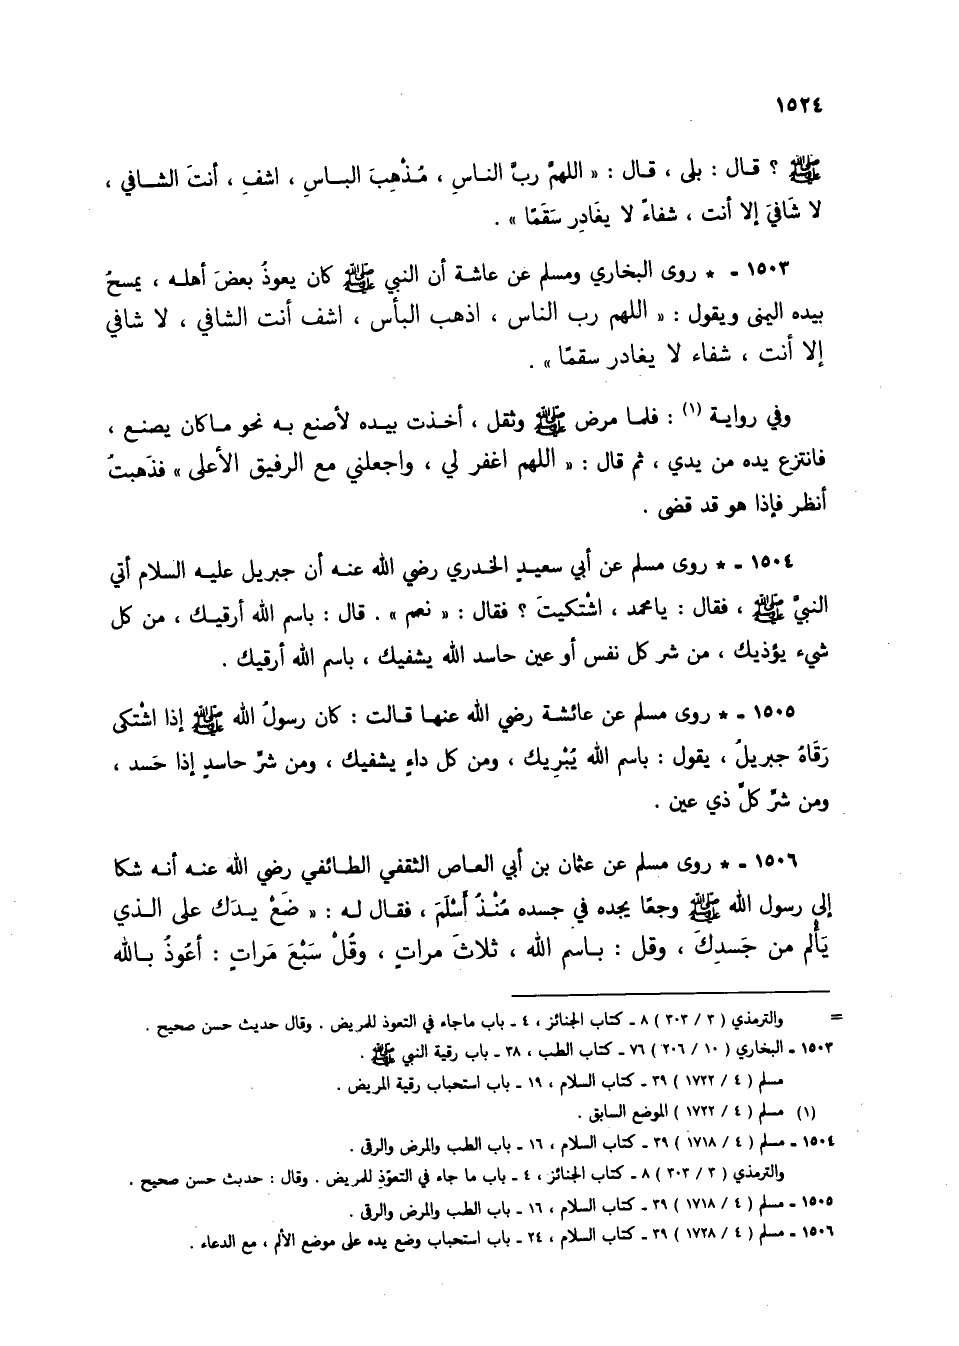 ١٥٢٤
ﷺ ؟ قـال : بلى ، قـال : « اللهمَّ ربَّ النـاسِ ، مُـذْهِبَ البـاسِ ، اشفِ ، أنتَ الشـافي ،
لا شَافيَ إلا أنت ، شفاءً لا يغَادِر سَقَمًا » .
١٥٠٣ ـ * روى البخاري ومسلم عن عاشة أن النبي ﷺ كان يعوذُ بعضَ أهلـه ، يمسحُ
بيده اليمنى ويقول : « اللهم رب الناس ، اذهب البأس ، اشف أنت الشافي ، لا شافي
إلا أنت ، شفاء لا يغادر سقمًا » .
وفي روايـة (١) : فلمـا مرض ﷺ وثقل ، أخـذت بيـده لأصنع بـه نحو مـاكان يصنـع ،
فانتزع يده من يدي ، ثم قال : « اللهم اغفر لي ، واجعلني مع الرفيق الأعلى » فذَهبتُ
أنظر فإذا هو قد قضى .
١٥٠٤ ـ * روى مسلم عن أبي سعيـدٍ الخـدري رضي الله عنـه أن جبريل عليـه السلام أتي
النبيَّ ﷺ ، فقال : يامحمد ، اشْتكيتَ ؟ فقال : « نعم » . قال : باسم الله أرقيـك ، من كل
شيء يؤذيك ، من شر كل نفس أو عين حاسد الله يشفيك ، باسم الله أرقيك .
١٥٠٥ ـ * روى مسلم عن عائشـة رضي الله عنهـا قـالت : كان رسولُ الله ﷺ إذا اشتْكى
رَقَاهُ جبريلُ ، يقول : باسم الله يُبْرِيك ، ومن كل داءٍ يشفيك ، ومن شرِّ حاسدٍ إذا حَسد ،
ومن شرِّ كلِّ ذي عين .
١٥٠٦ ـ * روى مسلم عن عثمان بن أبي العـاص الثقفي الطـائفي رضي الله عنـه أنـه شكا
إلى رسول الله ﷺ وجعًا يجده في جسده مُنْـذُ أَسْلَمَ ، فقـال لـه : « ضَعْ يـدَك على الـذي
يَأْلم من جَسدِكَ ، وقل : بـاسم الله ، ثلاثَ مراتٍ ، وقُلْ سَبْعَ مَراتٍ : أعُوذُ بـالله
= والترمذي ( ٣ / ٣٠٣ ) ٨ ـ كتاب الجنائز ، ٤ ـ باب ماجاء في التعوذ للمريض . وقال حديث حسن صحيح .
١٥٠٣ ـ البخاري ( ١٠ / ٢٠٦ ) ٧٦ ـ كتاب الطب ، ٣٨ ـ باب رقية النبي ﷺ .
مسلم ( ٤ / ١٧٢٢ ) ٣٩ ـ كتاب السلام ، ١٩ ـ باب استحباب رقية المريض .
(١) مسلم ( ٤ / ١٧٢٢ ) الموضع السابق .
١٥٠٤ ـ مسلم ( ٤ / ١٧١٨ ) ٣٩ ـ كتاب السلام ، ١٦ ـ باب الطب والمرض والرقى .
والترمذي ( ٣ / ٣٠٣ ) ٨ ـ كتاب الجنائز ، ٤ ـ باب ما جاء في التعوّذ للمريض . وقال : حديث حسن صحيح .
١٥٠٥ ـ مسلم ( ٤ / ١٧١٨ ) ٣٩ ـ كتاب السلام ، ١٦ ـ باب الطب والمرض والرقى .
١٥٠٦ ـ مسلم ( ٤ / ١٧٢٨ ) ٣٩ ـ كتاب السلام ، ٢٤ ـ باب استحباب وضع يده على موضع الألم ، مع الدعاء .